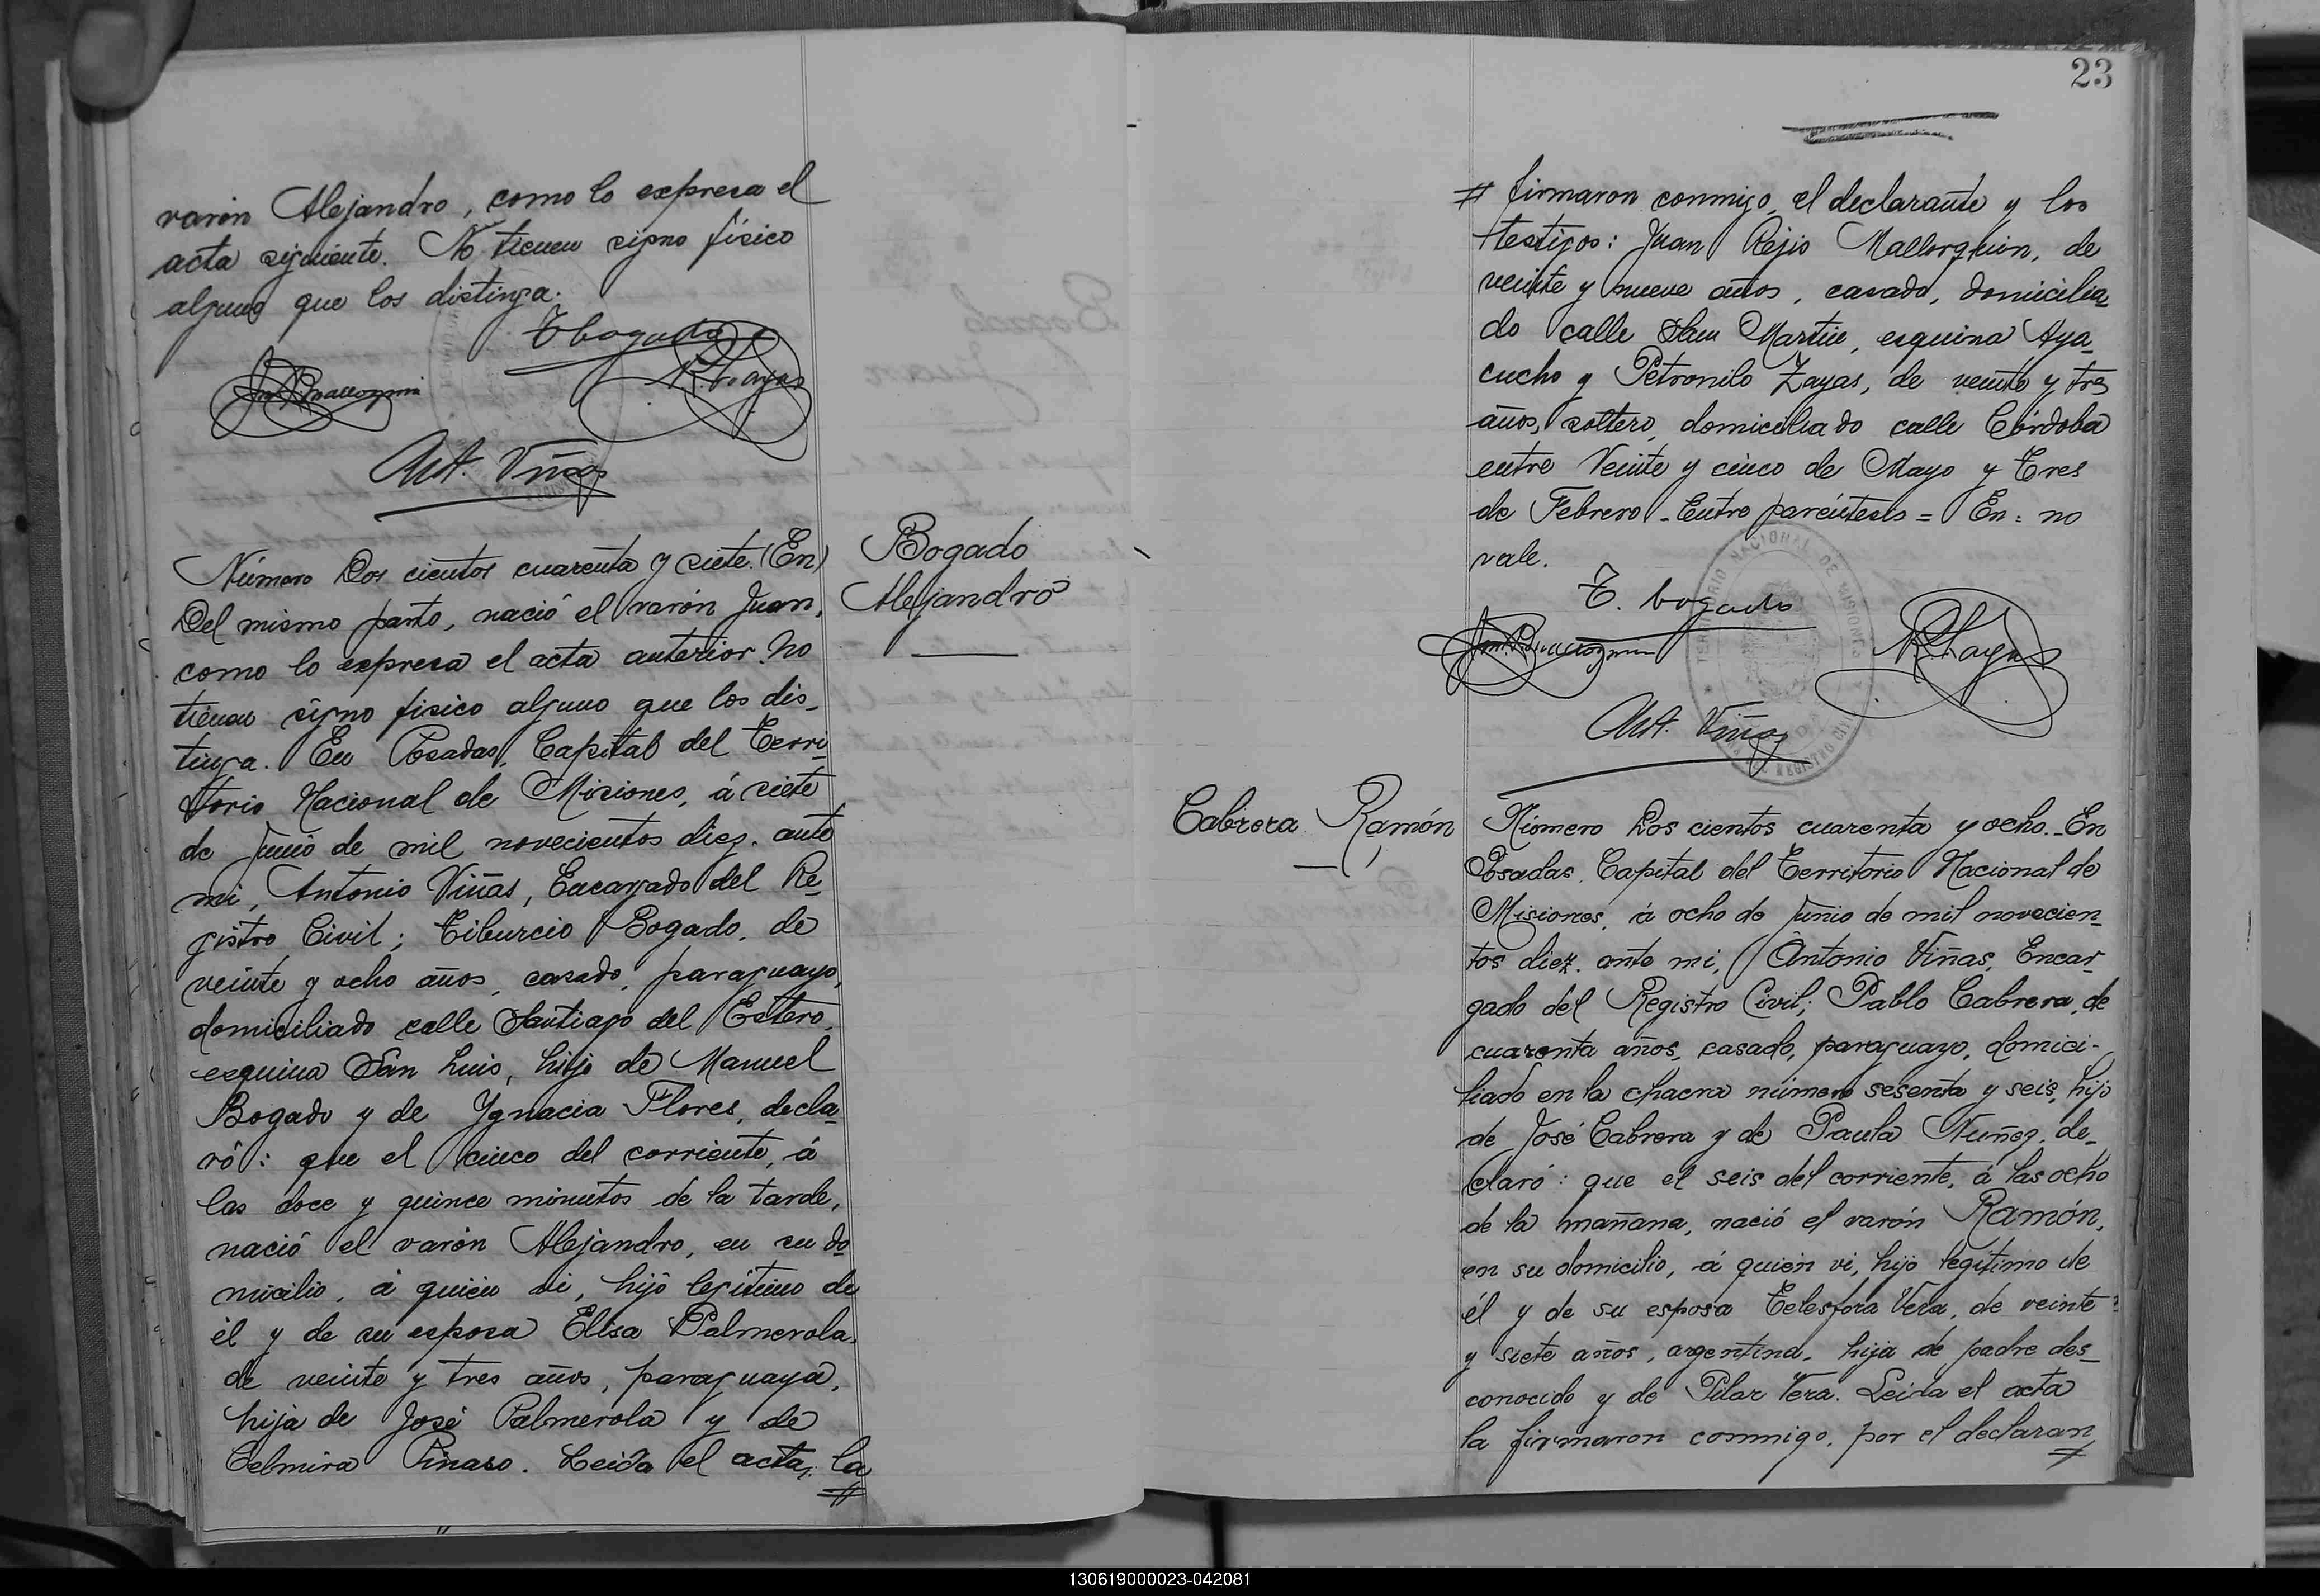 varón Alejandro, como lo expresa el
acta siguiente. No tienen signo físico
alguno que los distinga.
T bogado
Ant. Viñas
Número Dos cientos cuarenta y siete. (En)
Del mismo parto, nació el varón Juan,
como lo expresa el acta anterior. No
tienen signo fisico alguno que los dis-
tinga. En Posadas, Capital del Terri-
torio Nacional de Misiones, á siete
de Junio de mil novecientos diez. ante
mi, Antonio Viñas, Encargado del Re-
gistro Civil; Tiburcio Bogado, de
veinte y ocho años, casado, paraguayo,
domiciliado calle Santiago del Estero
esquina San Luis, hijo de Manuel
Bogado y de Ygnacia Flores, decla-
ró: que el cinco del corriente, á
las doce y quince minutos de la tarde,
nació el varón Alejandro, en su do-
micilio, á quien vi, hijo legitimo de
él y de su esposa Elisa Palmerola,
de veinte y tres años, paraguaya,
hija de José Palmerola y de
Celmira Pinaso. Leida el acta, la
#
Bogado
Alejandro
23
# firmaron conmigo, el declarante y los
testigos: Juan Rejis Mallorquin, de
veinte y nueve años, casado, domicilia-
do calle San Martin, esquina Aya-
cucho y Petronilo Zayas, de veinte y tres
años, soltero, domiciliado calle Córdoba
entre Veinte y cinco de Mayo y Tres
de Febrero - Entre paréntesis = En = no
vale.
T. bogado
Ant. Viñas
TERRITORIO NACIONAL DE MISIONES
REGISTRO CIVIL
Cabrera Ramón
Número Dos cientos cuarenta y ocho. - En
Posadas, Capital del Territorio Nacional de
Misiones, á ocho de Junio de mil novecien-
tos diez. ante mi, Antonio Viñas, Encar-
gado del Registro Civil; Pablo Cabrera, de
cuarenta años, casado, paraguayo, domici-
liado en la chacra número sesenta y seis, hijo
de José Cabrera y de Paula Nuñez, de-
claró: que el seis del corriente, á las ocho
de la mañana, nació el varón Ramón,
en su domicilio, á quién vi, hijo legitimo de
él y de su esposa Telesfora Vera, de veinte
y siete años, argentina, hija de padre des-
conocido y de Pilar Vera. Leida el acta
la firmaron conmigo, por el declaran
#
130619000023-042081